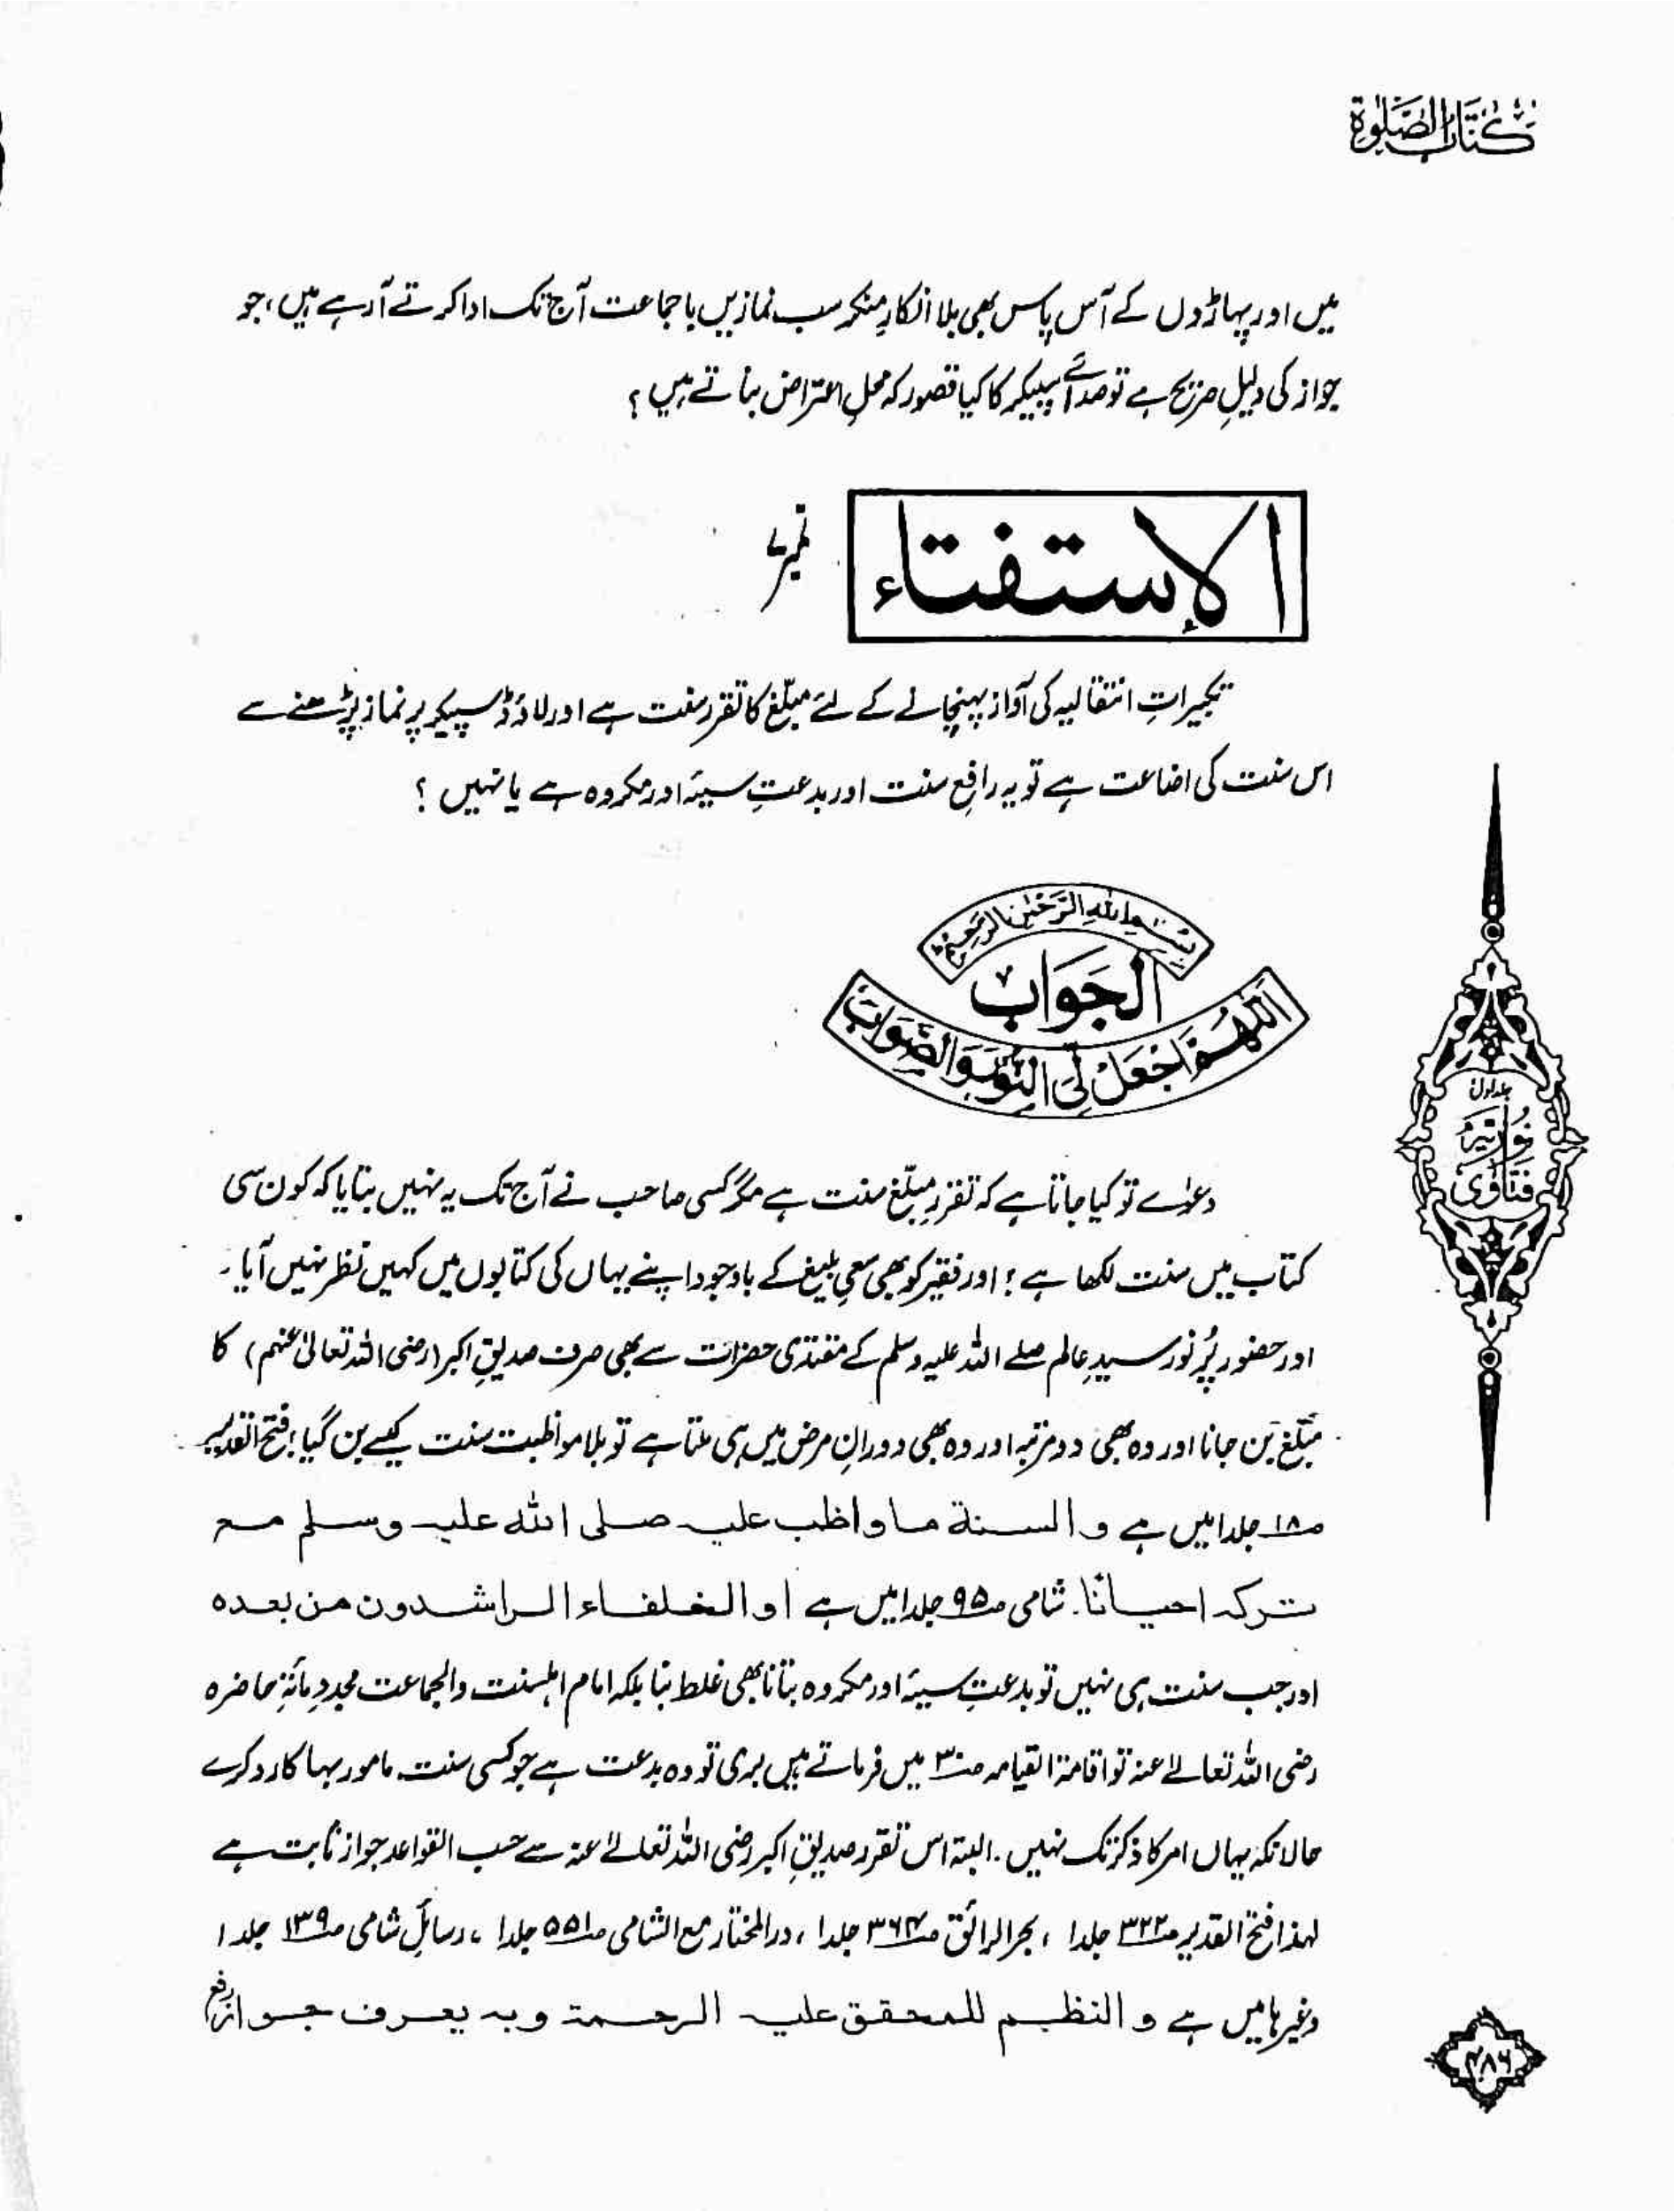 كتاب الصلوة
میں اور پہاڑوں کے آس پاس بھی بلا انکارِ منکر سب نمازیں باجماعت آج تک ادا کرتے آ رہے ہیں، جو
جواز کی دلیلِ صریح ہے تو صدائے سپیکر کا کیا قصور کہ محلِ اعتراض بناتے ہیں ؟
الاستفتاء
نمبر ۷
تکبیراتِ انتقالیہ کی آواز پہنچانے کے لئے مبلّغ کا تقرر سنت ہے اور لاؤڈ سپیکر پر نماز پڑھنے سے
اس سنت کی اضاعت ہے تو یہ رافعِ سنت اور بدعتِ سیئہ اور مکروہ ہے یا نہیں ؟
بسم الله الرحمن الرحيم
الجواب
اللهم اجعل لي النور والصواب
دعوٰے تو کیا جاتا ہے کہ تقررِ مبلّغ سنت ہے مگر کسی صاحب نے آج تک یہ نہیں بتایا کہ کون سی
کتاب میں سنت لکھا ہے ؟ اور فقیر کو بھی سعیِ بلیغ کے باوجود اپنے یہاں کی کتابوں میں کہیں نظر نہیں آیا۔
اور حضور پُر نور سیدِ عالم صلے اللہ علیہ وسلم کے مقتدی حضرات سے بھی صرف صدیقِ اکبر (رضی اللہ تعالیٰ عنہم) کا
مبّلغ بن جانا اور وہ بھی دو مرتبہ اور وہ بھی دورانِ مرض میں ہی ملتا ہے تو بلا مواظبت سنت کیسے بن گیا؟ فتح القدیر
صـ۱۸ جلد ۱ میں ہے و السنة ما واظب علیه صلی الله علیه وسلم مع
ترکه احیانا۔ شامی صـ۹۵ جلد ۱ میں ہے او الخلفاء الراشدون من بعده
اور جب سنت ہی نہیں تو بدعتِ سیئہ اور مکروہ بتانا بھی غلط بنا بلکہ امام اہلسنت والجماعت مجددِ مائۃِ حاضرہ
رضی اللہ تعالےٰ عنہ تو اقامۃ القیامہ صـ۳۰ میں فرماتے ہیں بری تو وہ بدعت ہے جو کسی سنت مامور بہا کا رد کرے
حالانکہ یہاں امر کا ذکر تک نہیں۔ البتہ اس تقررِ صدیقِ اکبر رضی اللہ تعالےٰ عنہ سے حسب القواعد جواز ثابت ہے
لہذا فتح القدیر صـ۳۲۲ جلد ۱ ، بحر الرائق صـ۳۶۴ جلد ۱ ، در المختار مع الشامی صـ۵۵۱ جلد ۱ ، رسائلِ شامی صـ۱۳۹ جلد ۱
وغیرہا میں ہے و النظم للمحقق علیه الرحمة و به یعرف جواز رفع
جلد اول
فتاوٰی نوریہ
۴۸۶